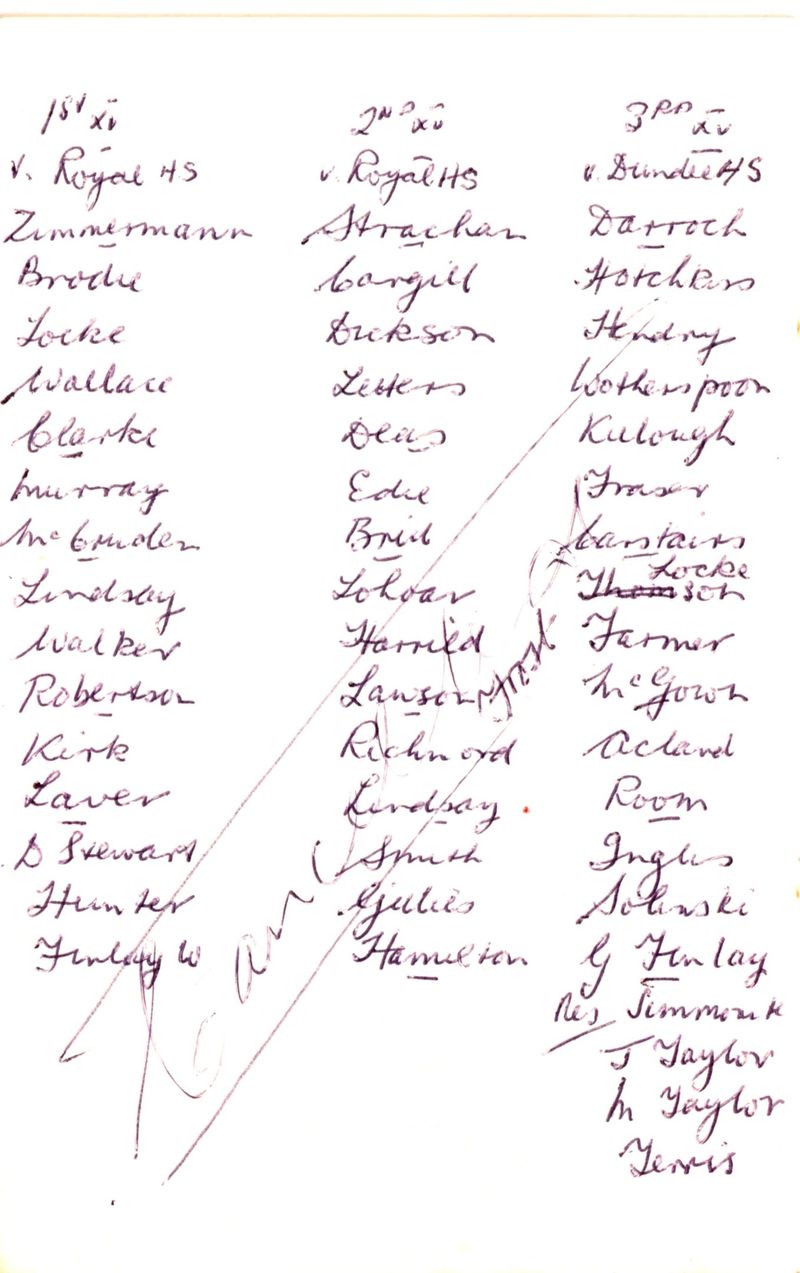 1st XV
v. Royal HS
Zimmermann
Brodie
Locke
Wallace
Clarke
Murray
Lindsay
Walker
Robertson
Kirk
Laver
D Stewart
Hunter
Finlay W
2ND XV
v. Royal HS
Strachan
Cargill
Dickson
Letters
Deas
Edie
Harrild
Lawson
Richmond
Lindsay
Smith
Gillies
Hamilton
3RD XV
v. Dundee HS
Darroch
Hotchkiss
Hendry
Wotherspoon
Fraser
Carstairs
Locke
Thomson
Farmer
McGown
Acland
Room
Inglis
Solinski
G Finlay
Res
J Taylor
M Taylor
Ferris
Cancelled Frost